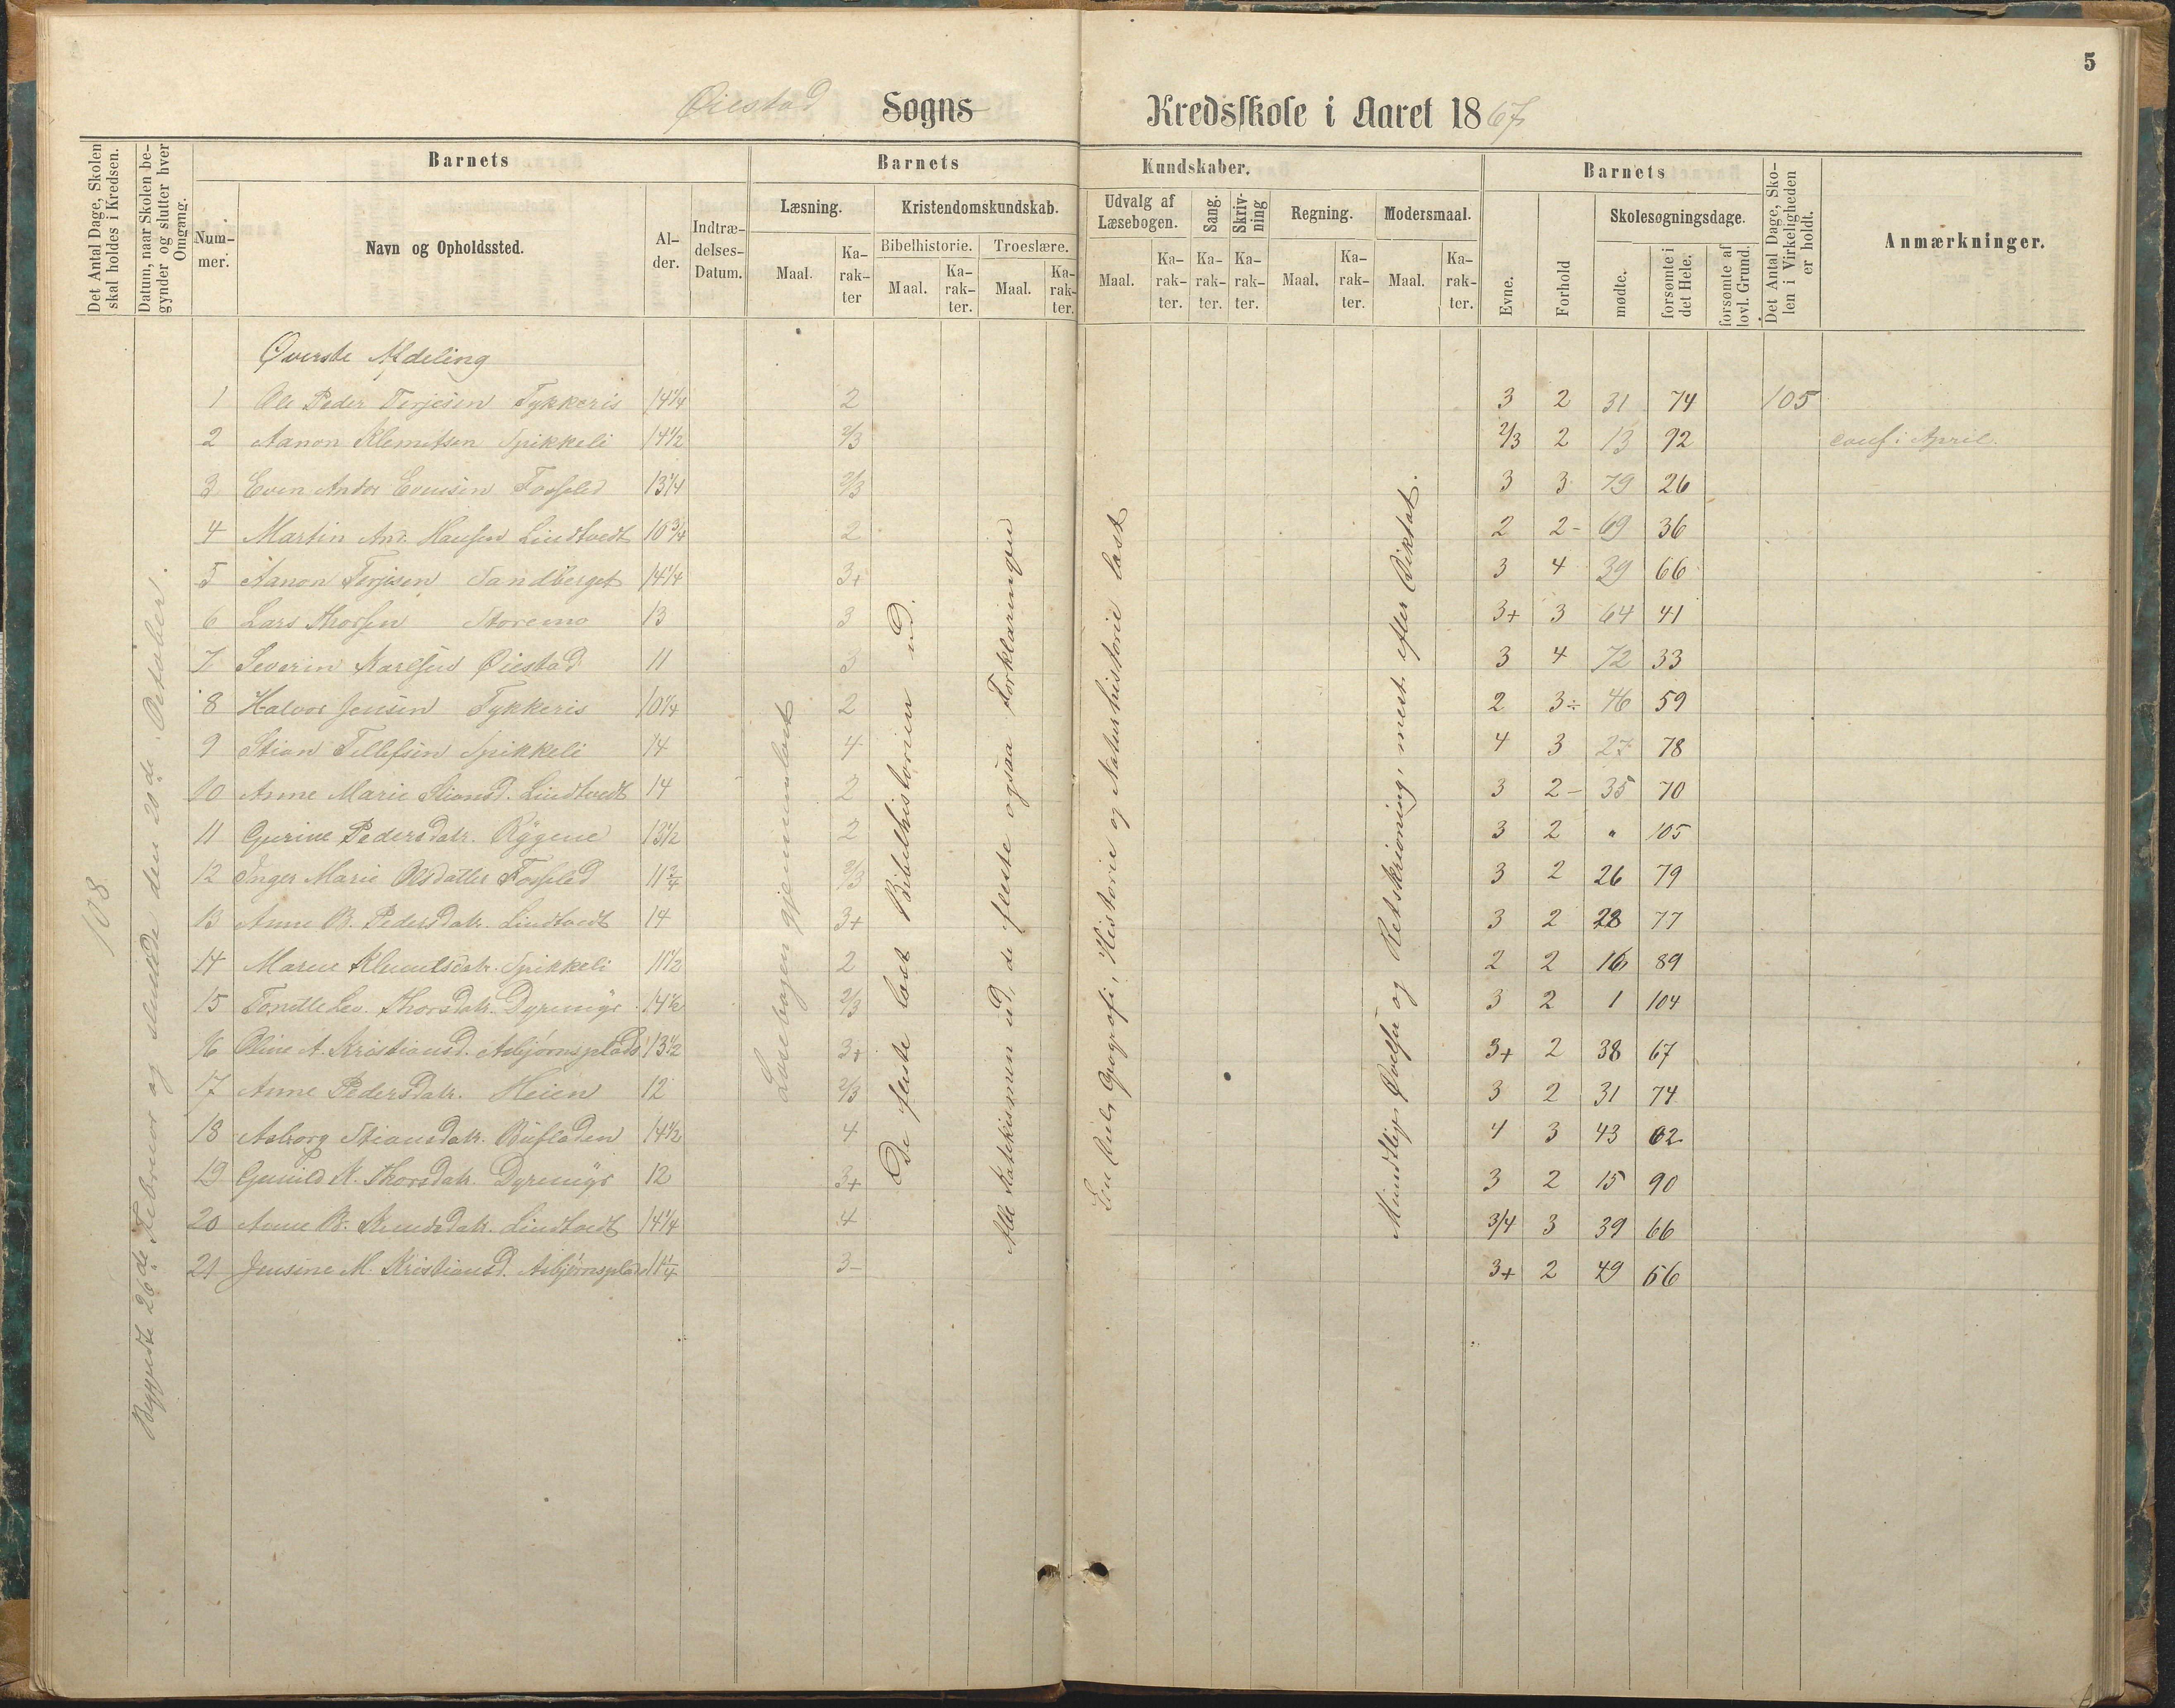 5
Øiestad Sogns Kredsskole i Aaret 1867
Det Antal Dage, Skolen skal holdes i Kredsen.
Datum, naar Skolen begynder og slutter hver Omgang.
Barnets
Nummer.
Navn og Opholdssted.
Alder.
Indtrædelses-Datum.
Barnets Kundskaber.
Læsning.
Maal.
Karakter
Kristendomskundskab.
Bibelhistorie.
Maal.
Karakter.
Troeslære.
Maal.
Karakter.
Udvalg af Læsebogen.
Maal.
Karakter.
Sang.
Karakter.
Skrivning
Karakter.
Regning.
Maal.
Karakter.
Modersmaal.
Maal.
Karakter.
Barnets
Evne.
Forhold
Skolesøgningsdage.
mødte.
forsømte i det Hele.
forsømte af lovl. Grund.
Det Antal Dage, Skolen i Virkeligheden er holdt.
Anmærkninger.
108
Begyndte 26de Februar og sluttede den 20de October.
Øverste Afdeling
1 Ole Peder Terjesen Tykkeris 14 1/4 2 3 2 31 74 105
2 Aanon Klemitsen Spikkeli 14 1/2 2/3 2/3 2 13 92 conf. i April.
3 Even Andor Evensen Fosseled 13 1/4 2/3 3 3 79 26
4 Martin And. Hansen Lindtvedt 10 3/4 2 2 2- 69 36
5 Aanon Terjesen Sandberget 14 1/4 3+ 3 4 39 66
6 Lars Thorsen Storemo 13 3 3+ 3 64 41
7 Severin Karlsen Øiestad 11 3 3 4 72 33
8 Halvor Jensen Tykkeris 10 1/4 2 2 3÷ 46 59
9 Stian Tellefsen Spikkeli 14 4 4 3 27 78
10 Anne Marie Stiansd. Lindtvedt 14 2 3 2- 35 70
11 Gurine Pedersdatr. Rygene 13 1/2 2 3 2 " 105
12 Inger Marie Olsdatter Fosseled 11 3/4 2/3 3 2 26 79
13 Anne B. Pedersdatr. Lindtvedt 14 3+ 3 2 28 77
14 Maren Klemitsdatr. Spikkeli 11 1/2 2 2 2 16 89
15 Thorsdatr. Dyremyr 14 1/2 2/3 3 2 1 104
16 Oline A. Kristiansd. Asbjørnsplads 13 1/2 3+ 3+ 2 38 67
17 Anne Pedersdatr. Heien 12 2/3 3 2 31 74
18 Aslaug Stiansdatr. 14 1/2 4 4 3 43 62
19 Gunild K. Thorsdatr. Dyremyr 12 3+ 3 2 15 90
20 Anne B. Lindtvedt 14 1/4 4 3/4 3 39 66
21 Jensine M. Kristiansd. Asbjørnsplads 11 1/4 3- 3+ 2 49 56
Læsebogen gjennemlæst
De fleste læst Bibelhistorien ud.
Alle Katekismen ud, de fleste ogsaa Forklaringen
Een Deel Geografi, Historie og Naturhistorie læst
Mundtlige Øvelser og Retskrivning, mest efter Diktat.